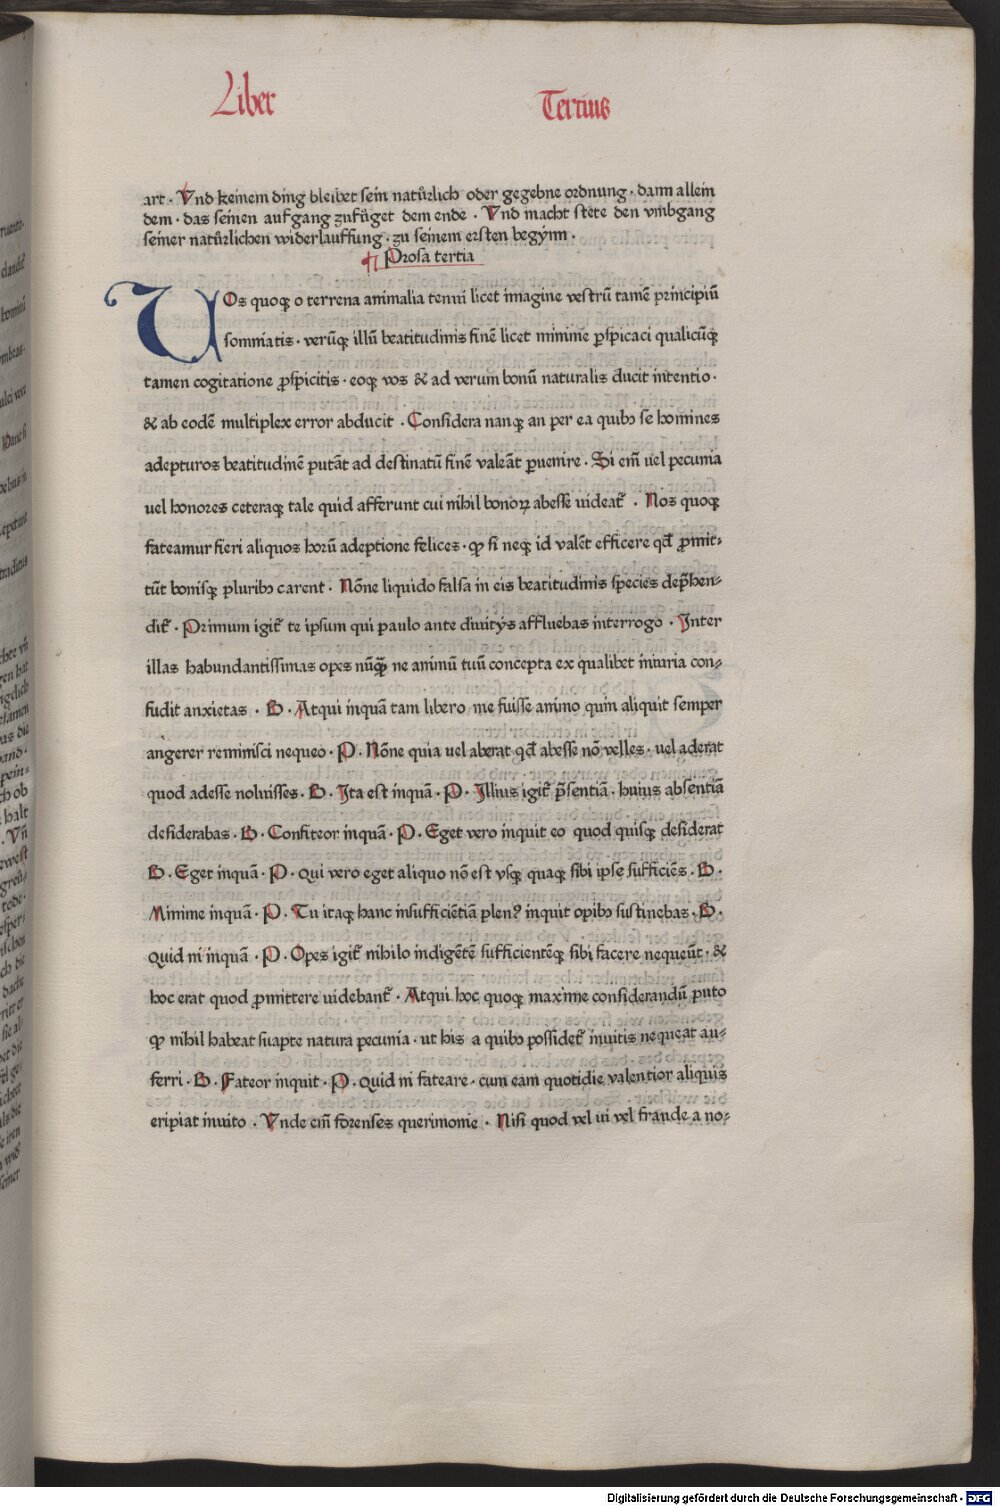 Liber Tertius
art · Vnd keinem ding bleibet sein natürlich oder gegebne ordnung · dann allein
dem · das seinen aufgang zufüget dem ende · Vnd macht stete den vmbgang
seiner natürlichen widerlauffung · zu seinem ersten begynn ·
Prosa tertia
UOs quoqꝫ o terrena animalia tenui licet imagine vestrũ tamẽ principiũ
somniatis · verũqꝫ illũ beatitudinis finẽ licet minime ꝑspicaci qualicũqꝫ
tamen cogitatione ꝓspicitis · eoqꝫ vos & ad verum bonũ naturalis ducit intentio ·
& ab eodẽ multiplex error abducit · Considera nanqꝫ an per ea quibꝰ se homines
adepturos beatitudinẽ putãt ad destinatũ finẽ valeãt ꝑuenire · Si em̃ uel pecunia
uel honores ceteraqꝫ tale quid afferunt cui nihil bonoꝝ abesse uideat᷑ · Nos quoqꝫ
fateamur fieri aliquos horũ adeptione felices · qꝙ si neqꝫ id valẽt efficere qd̃ ꝓmit-
tũt bonisqꝫ pluribꝰ carent · Nõne liquido falsa in eis beatitudinis species dep̃hen-
dit᷑ · Primum igit᷑ te ipsum qui paulo ante diuitijs affluebas interrogo · Inter
illas habundantissimas opes nũqꝫ̃ ne animũ tuũ concepta ex qualibet iniuria con-
fudit anxietas · B · Atqui inquã tam libero me fuisse animo quin aliquit semper
angerer reminisci nequeo · P · Nõne quia uel aberat qd̃ abesse nõ velles · uel aderat
quod adesse noluisses · B · Ita est inquã · P · Illius igit᷑ p̃sentiã · huius absentiã
desiderabas · B · Confiteor inquã · P · Eget vero inquit eo quod quisqꝫ desiderat
B · Eget inquã · P · Qui vero eget aliquo nõ est vsqꝫ quaqꝫ sibi ipse sufficiẽs · B ·
Minime inquã · P · Tu itaqꝫ hanc insufficiẽtiã plenꝰ inquit opibꝰ sustinebas · B ·
Quid ni inquã · P · Opes igit᷑ nihilo indigẽtẽ sufficientẽqꝫ sibi facere nequeũt · &
hoc erat quod ꝓmittere uidebant᷑ · Atqui hoc quoqꝫ maxime considerandũ puto
qꝙ nihil habeat suapte natura pecunia · ut his a quibꝰ possidet᷑ inuitis nequeat au-
ferri · B · Fateor inquit · P · Quid ni fateare · cum eam quotidie valentior aliquis
eripiat inuito · Vnde em̃ forenses querimonie · Nisi quod vel ui vel fraude a no-
Digitalisierung gefördert durch die Deutsche Forschungsgemeinschaft - DFG